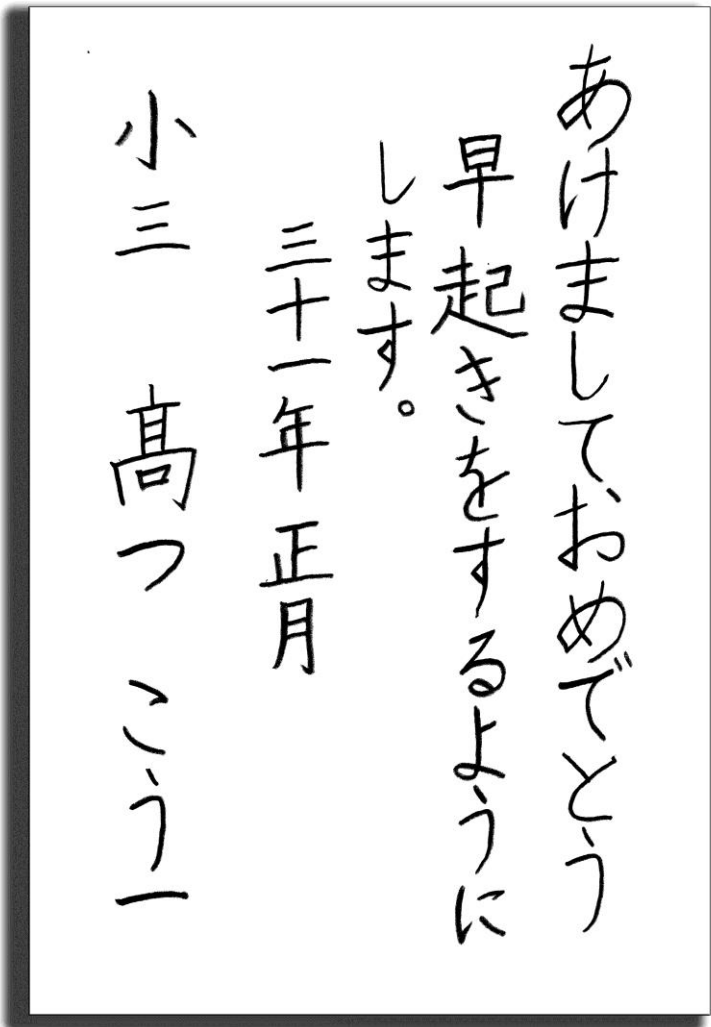 あけましておめでとう
早起きをするように
します。
三十一年正月
小三 髙つ こう一